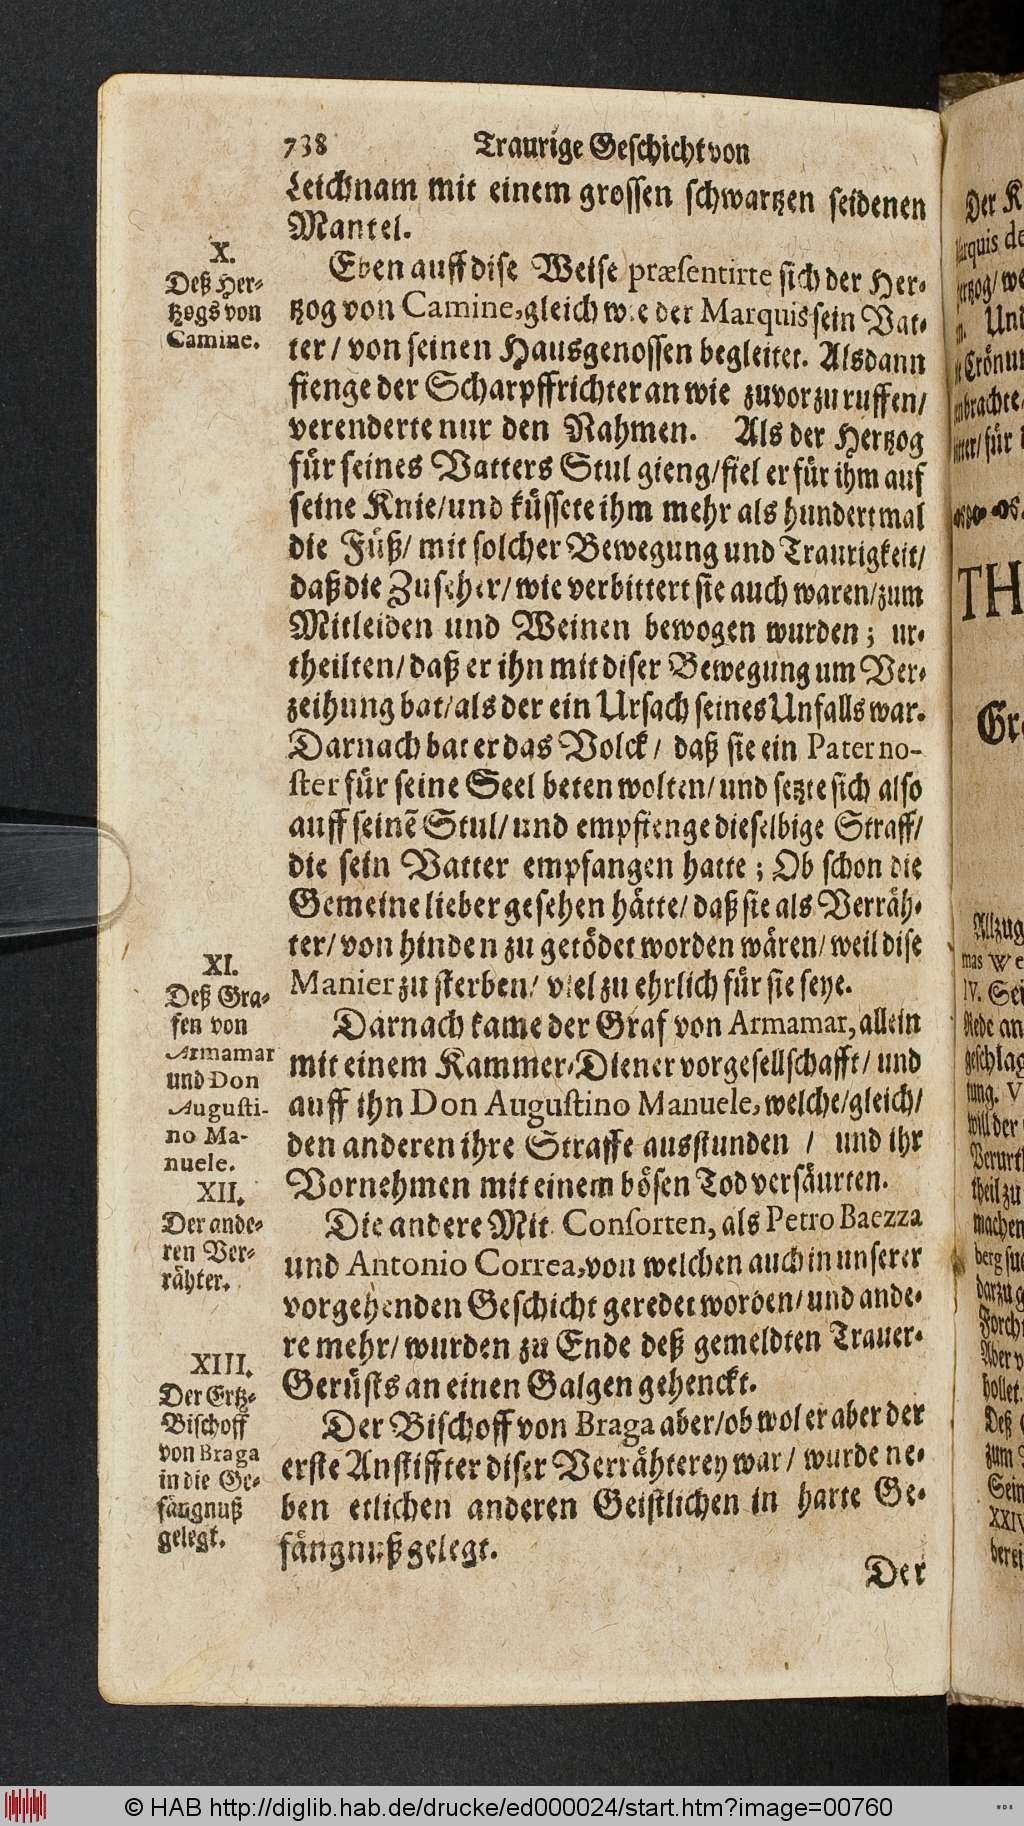 738 Traurige Geschicht von
Leichnam mit einem grossen schwartzen seidenen
Mantel.
X.
Deß Her-
tzogs von
Camine.
Eben auff dise Weise præsentirte sich der Her-
tzog von Camine, gleich wie der Marquis sein Vat-
ter / von seinen Hausgenossen begleitet. Alsdann
fienge der Scharpffrichter an wie zuvor zu ruffen /
verenderte nur den Nahmen. Als der Hertzog
für seines Vatters Stul gieng / fiel er für ihm auf
seine Knie / und küssete ihm mehr als hundert mal
die Füß / mit solcher Bewegung und Traurigkeit /
daß die Zuseher / wie verbittert sie auch waren / zum
Mitleiden und Weinen bewogen wurden ; ur-
theilten / daß er ihn mit diser Bewegung um Ver-
zeihung bat / als der ein Ursach seines Unfalls war.
Darnach bat er das Volck / daß sie ein Paterno-
ster für seine Seel beten wolten / und setzte sich also
auff seinẽ Stul / und empfienge dieselbige Straff /
die sein Vatter empfangen hatte ; Ob schon die
Gemeine lieber gesehen hätte / daß sie als Verräh-
ter / von hinden zu getödet worden wären / weil dise
Manier zu sterben / viel zu ehrlich für sie seye.
XI.
Deß Gra-
fen von
Armamar
und Don
Augusti-
no Ma-
nuele.
Darnach kame der Graf von Armamar, allein
mit einem Kammer-Diener vorgesellschafft / und
auff ihn Don Augustino Manuele, welche / gleich /
den anderen ihre Straffe ausstunden / und ihr
Vornehmen mit einem bösen Tod versäurten.
XII.
Der ande-
ren Ver-
rähter.
Die andere Mit Consorten, als Petro Baezza
und Antonio Correa, von welchen auch in unserer
vorgehenden Geschicht geredet worden / und ande-
re mehr / wurden zu Ende deß gemeldten Trauer-
Gerüsts an einen Galgen gehenckt.
XIII.
Der Ertz-
Bischoff
von Braga
in die Ge-
fängnuß
gelegt.
Der Bischoff von Braga aber / ob wol er aber der
erste Anstiffter diser Verrähterey war / wurde ne-
ben etlichen anderen Geistlichen in harte Ge-
fängnuß gelegt.
Der
© HAB http://diglib.hab.de/drucke/ed000024/start.htm?image=00760